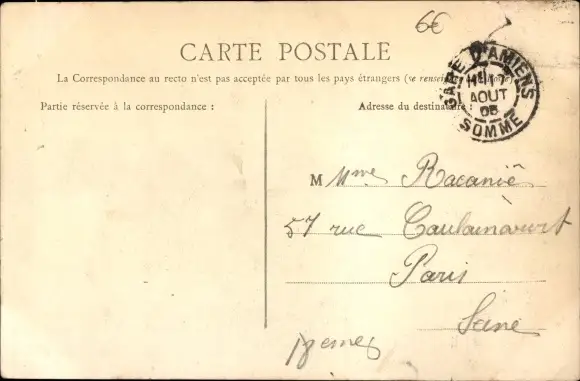 6€
CARTE POSTALE
La Correspondance au recto n'est pas acceptée par tous les pays étrangers (se renseigner
Partie réservée à la correspondance :
Adresse du destinataire :
GARE D'AMIENS
AOUT
SOMME
M Mme Racanié
57 rue Caulaincourt
Paris
Seine